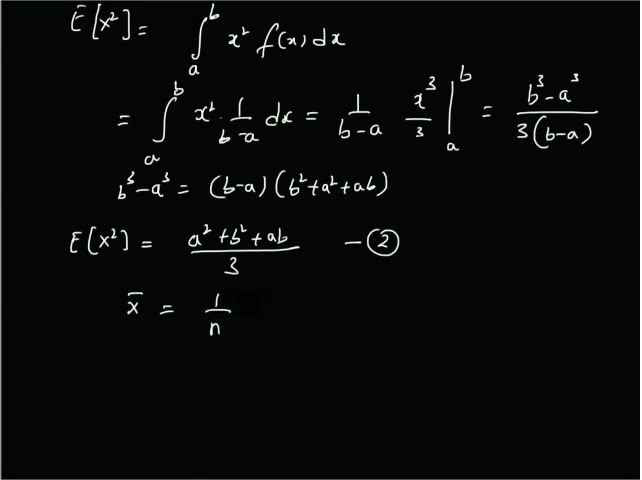 E[x²] = ∫ₐᵇ x² f(x) dx
= ∫ₐᵇ x² · 1/(b-a) dx = 1/(b-a) x³/3 |ₐᵇ = (b³-a³)/(3(b-a))
b³-a³ = (b-a)(b²+a²+ab)
E[x²] = (a²+b²+ab)/3 - ②
x̄ = 1/n